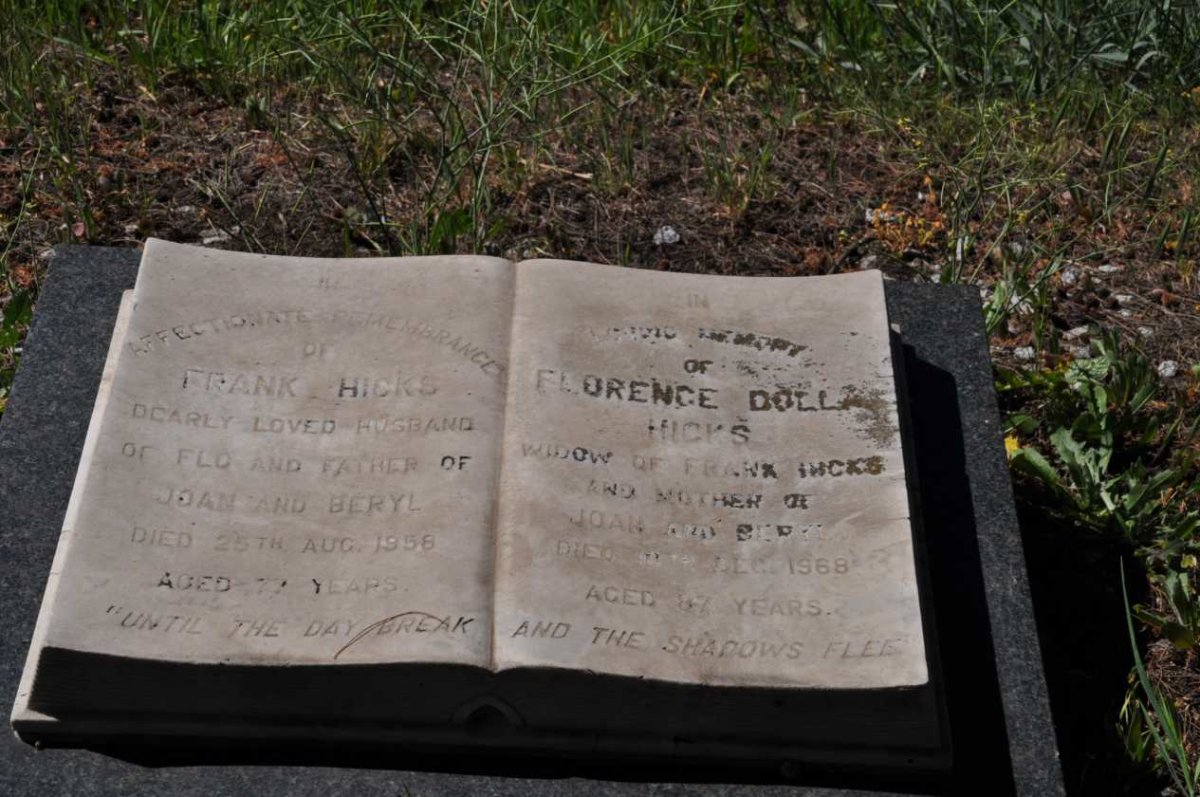 IN
AFFECTIONATE REMEMBRANCE
OF
FRANK HICKS
DEARLY LOVED HUSBAND
OF FLO AND FATHER OF
JOAN AND BERYL
DIED 25TH AUG. 1958
AGED 77 YEARS.
"UNTIL THE DAY BREAK
IN
MEMORY
OF
FLORENCE DOLLA
HICKS
WIDOW OF FRANK HICKS
AND MOTHER OF
JOAN AND BERYL
DIED DEC. 1968
AGED 87 YEARS.
AND THE SHADOWS FLEE